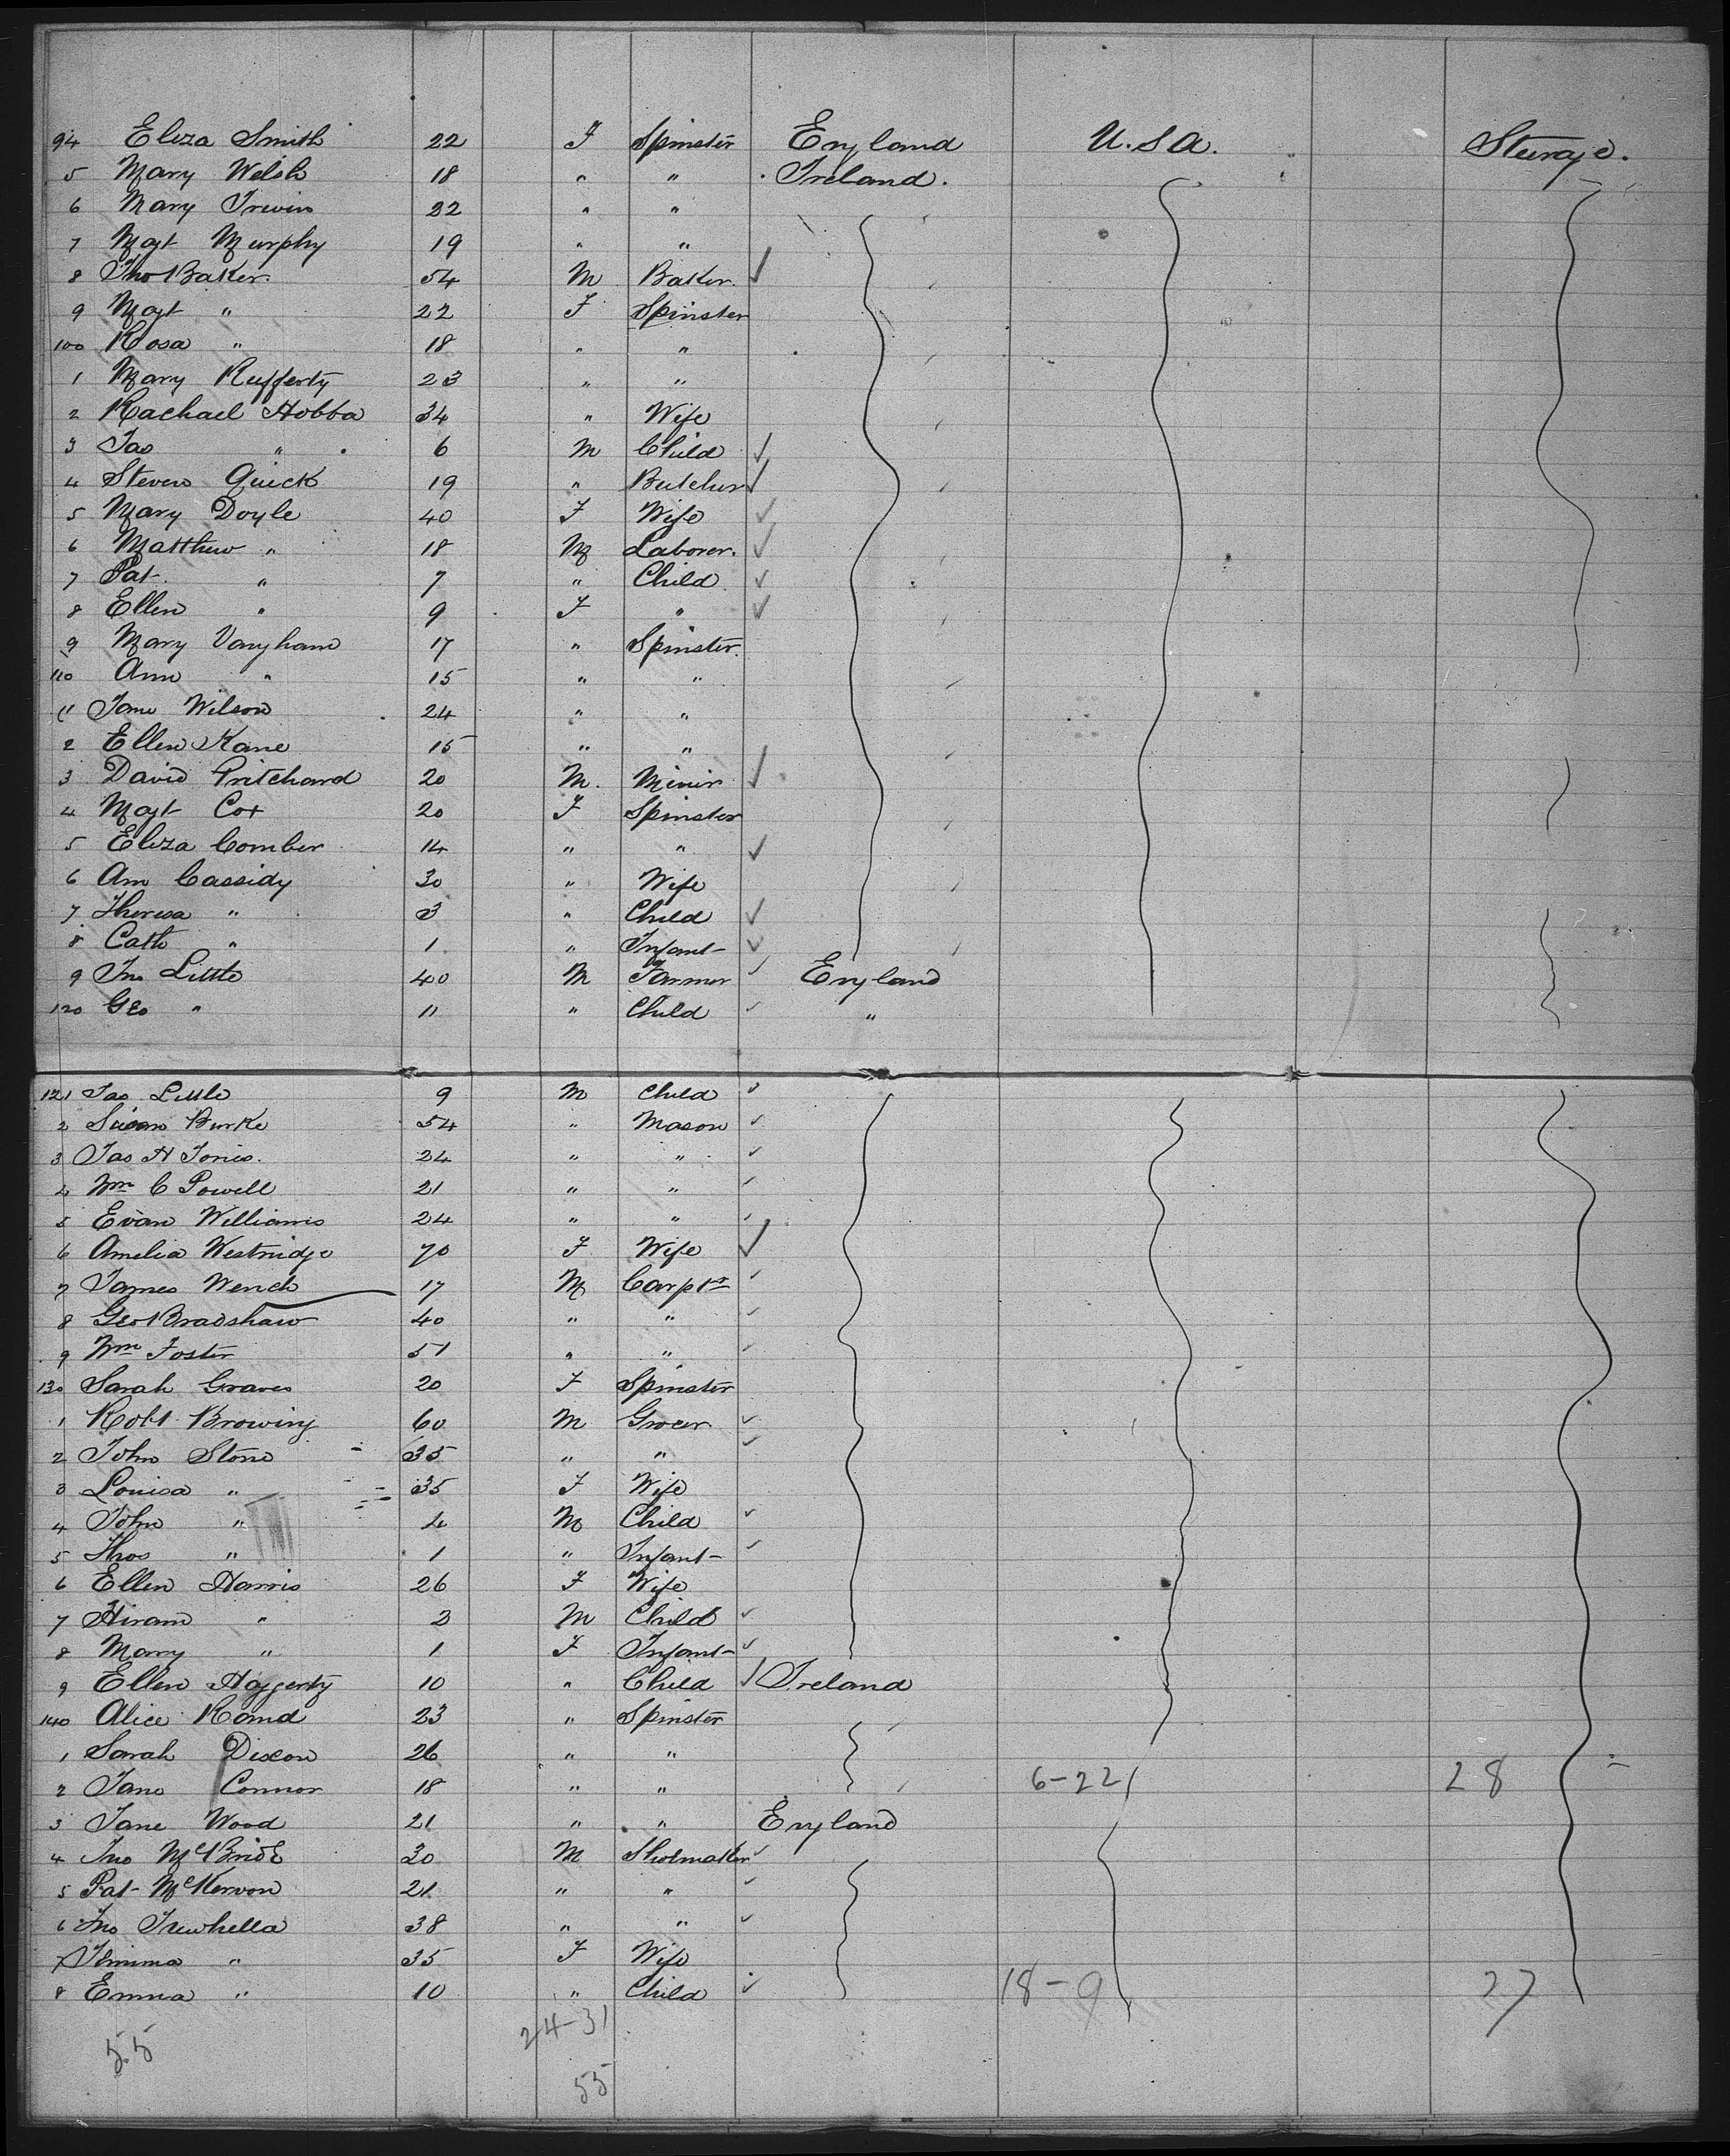 94 Eliza Smith 22 F Spinster England U.S.A. Steerage.
5 Mary Welsh 18 " " Ireland.
6 Mary Irwin 22 " "
7 Mgt Murphy 19 " "
8 Tho Baker 54 M Baker
9 Mgt " 22 F Spinster
100 Rosa " 18 " "
1 Mary Rufferty 23 " "
2 Rachael Hobba 34 " Wife
3 Jas " 6 M Child
4 Steven Quick 19 " Butcher
5 Mary Doyle 40 F Wife
6 Matthew " 18 M Laborer.
7 Pat " 7 " Child
8 Ellen " 9 F "
9 Mary Vaugham 17 " Spinster.
110 Ann " 15 " "
11 Jane Wilson 24 " "
2 Ellen Kane 15 " "
3 David Pritchard 20 M. Miner
4 Mgt Cox 20 F Spinster
5 Eliza Comber 14 " "
6 Ann Cassidy 30 " Wife
7 Theresa " 3 " Child
8 Cath " 1 " Infant
9 Jno Little 40 M Farmer England
120 Geo " 11 " Child "
121 Jas Little 9 M Child
2 Burke 54 " Mason
3 Jas H Jones. 24 " "
4 Wm C Powell 21 " "
5 Evan Williams 24 " "
6 Amelia Westridge 70 F Wife
7 James Wench 17 M Carptr
8 Geo Bradshaw 40 " "
9 Wm Foster 51 " "
130 Sarah Graves 20 F Spinster
1 Robt Browing 60 M Grocer
2 John Stone 35 " "
3 Louisa " 35 F Wife
4 John " 4 M Child
5 Thos " 1 " Infant
6 Ellen Harris 26 F Wife
7 Hiram " 3 M Child
8 Marry " 1 F Infant
9 Ellen Haggerty 10 " Child Ireland
140 Alice Rand 23 " Spinster
1 Sarah Dixon 26 " "
2 Jane Connor 18 " " 6-22 28
3 Jane Wood 21 " " England
4 Jno McBride 30 M Shoemaker
5 Pat McKervon 21 " "
6 Jno Trewhella 38 " "
7 Jemima " 35 F Wife
8 Emma " 10 " Child 18-9 27
55 24-31
55